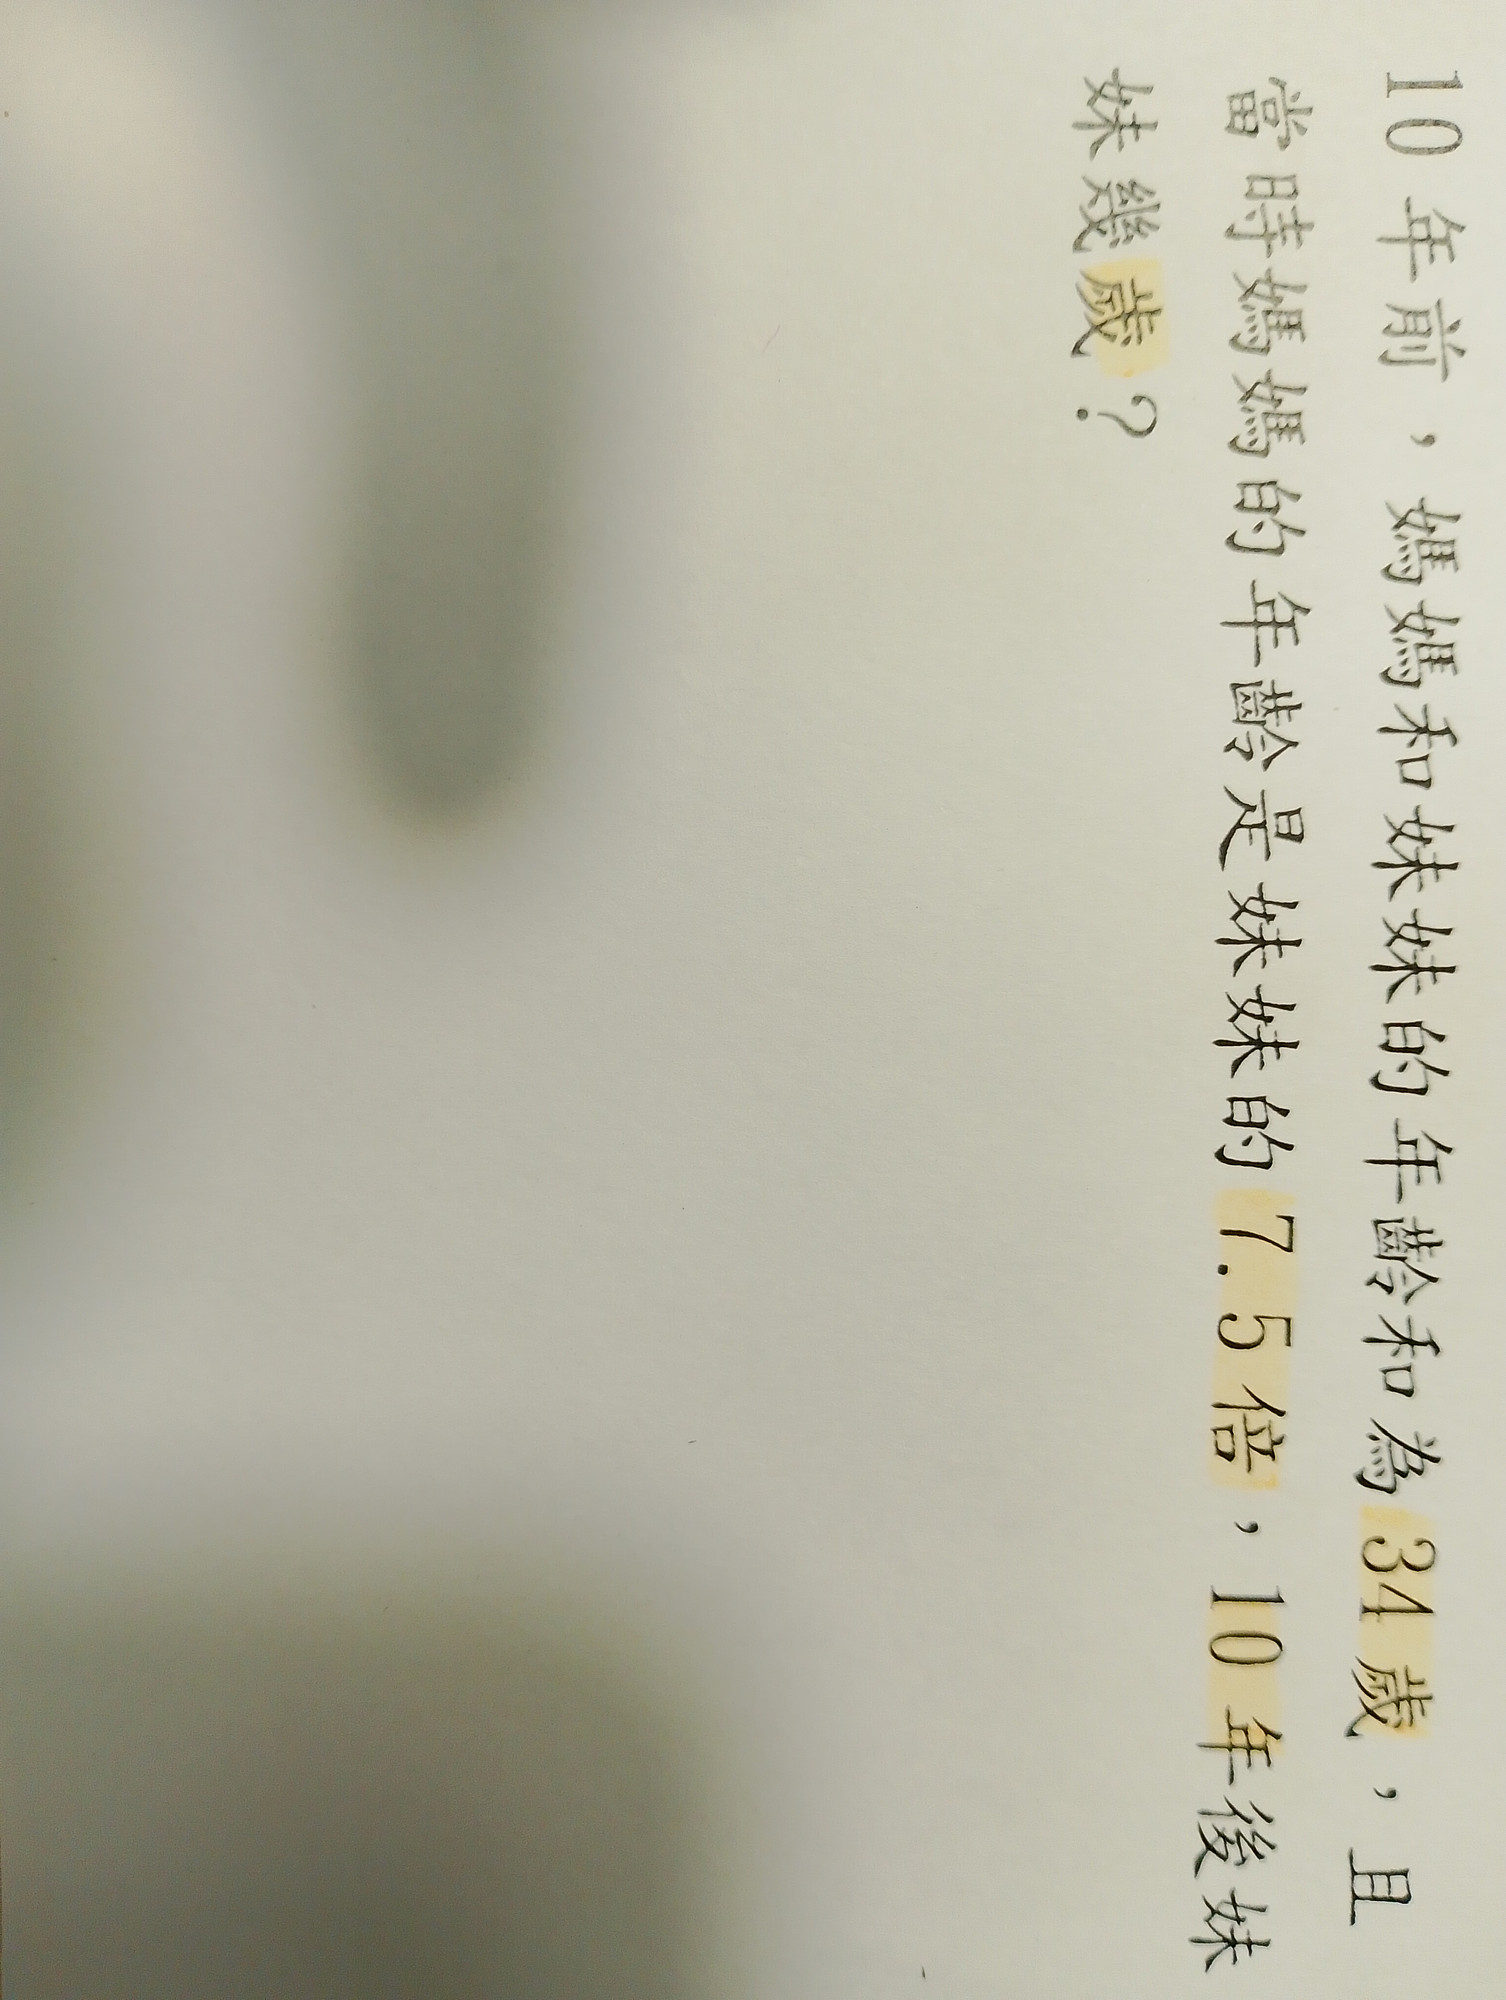 10 年前，媽媽和妹妹的年齡和為 34 歲，且
當時媽媽的年齡是妹妹的 7.5 倍，10 年後妹
妹幾歲？